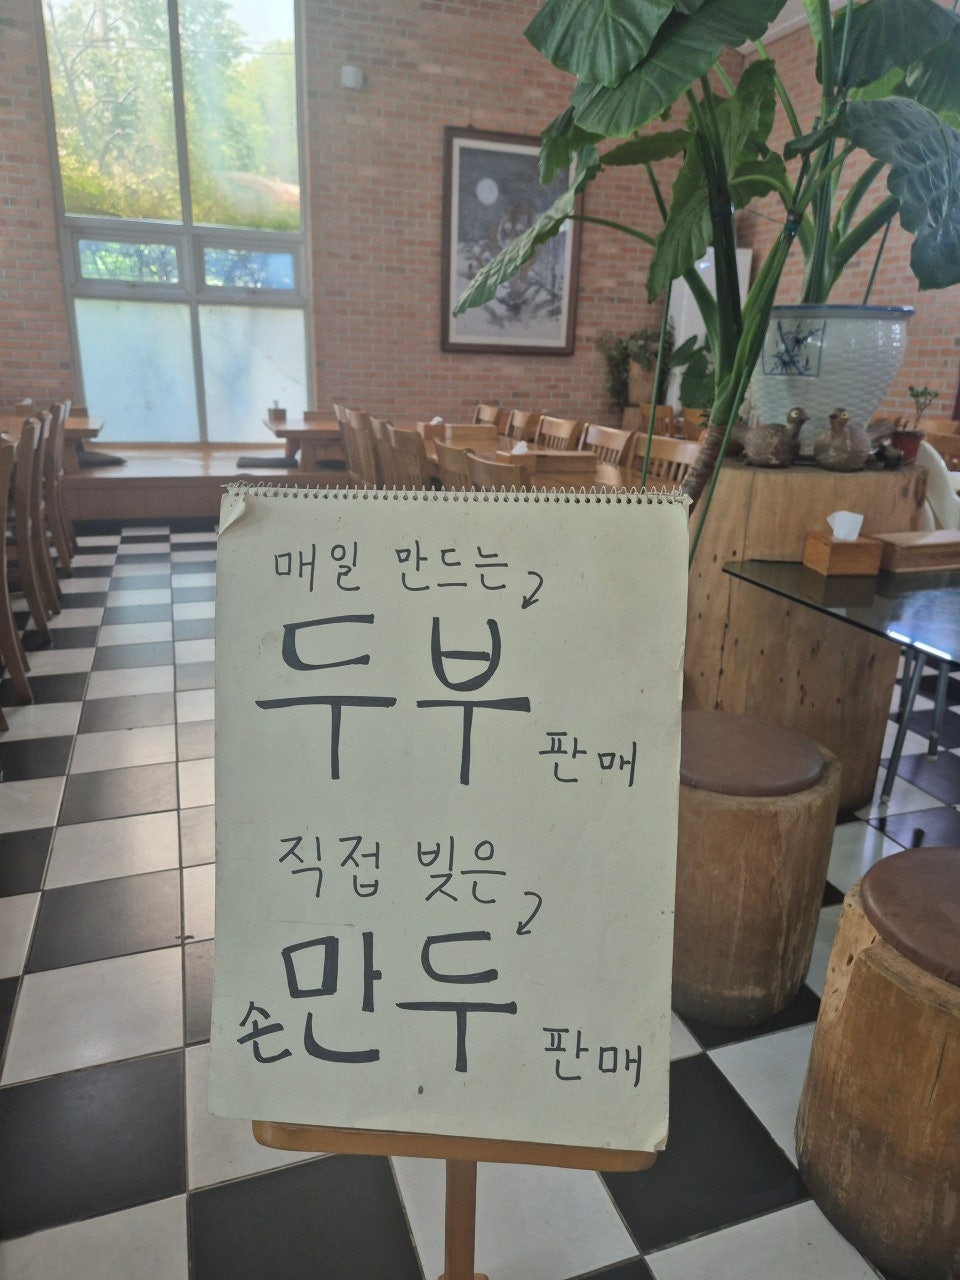 매일 만드는
두부 판매
직접 빚은
손만두 판매